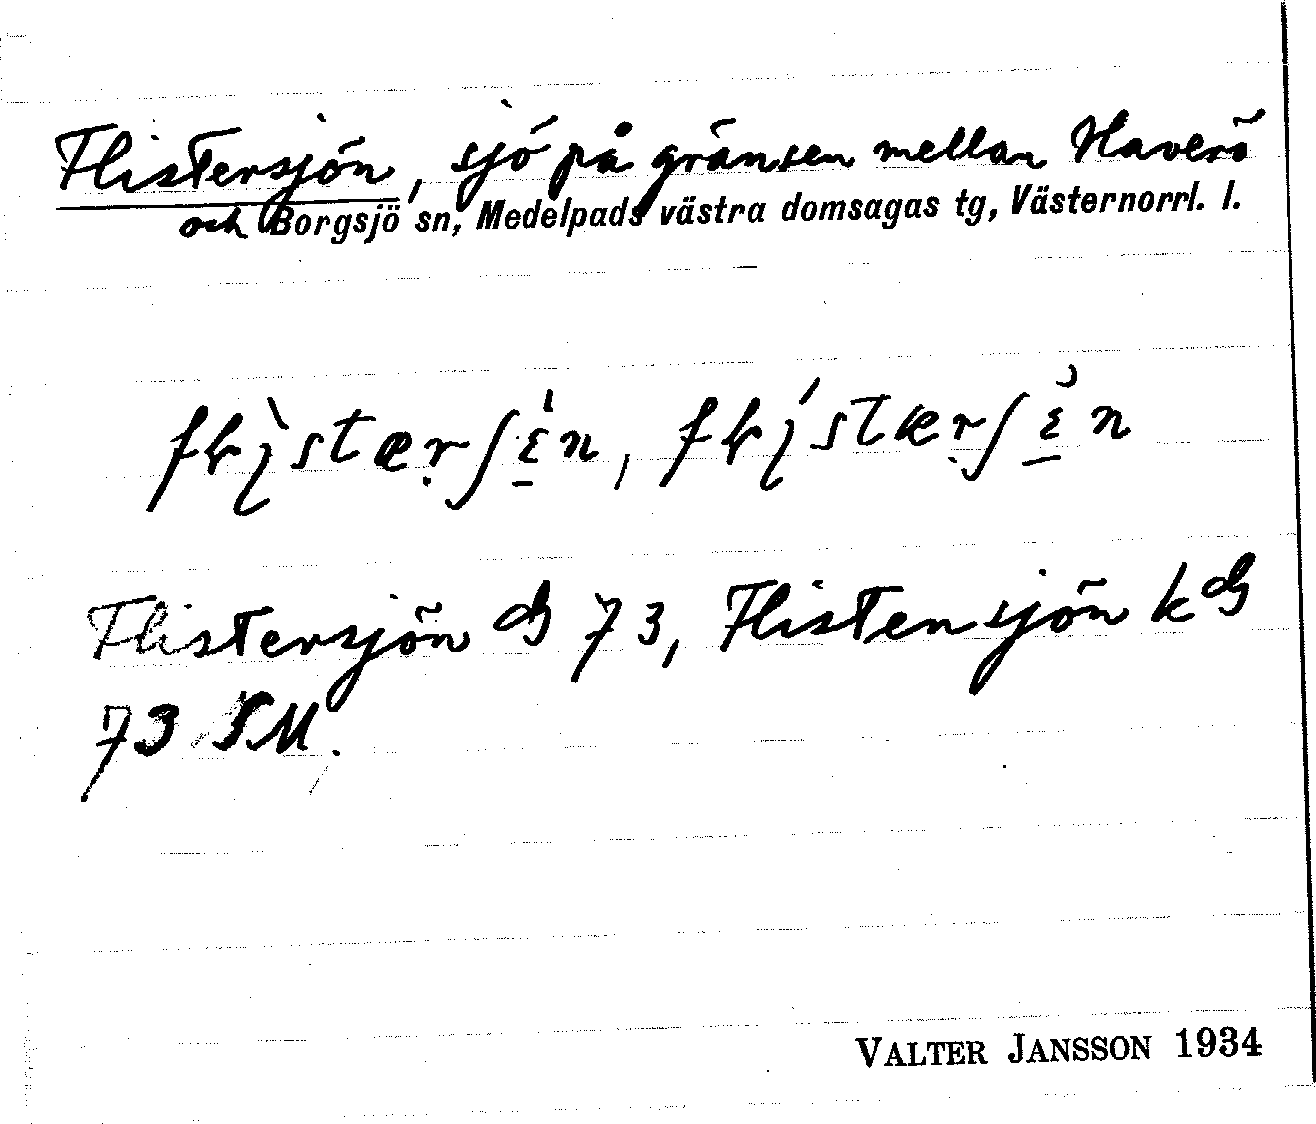 Flistersjön, sjö på gränsen mellan Haverö
och Borgsjö sn, Medelpads västra domsagas tg, Västernorrl. l.
Flistersjön 73, Flistensjön k
73 SM.
VALTER JANSSON 1934